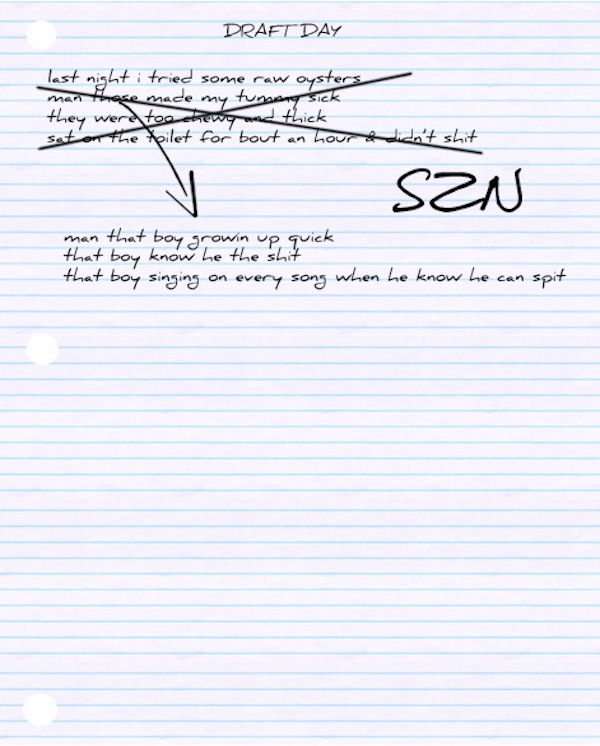 DRAFT DAY
last night i tried some raw oysters
man those made my tummy sick
they were too chewy and thick
sat on the toilet for bout an hour & didn't shit
SZN
man that boy growin up quick
that boy know he the shit
that boy singing on every song when he know he can spit